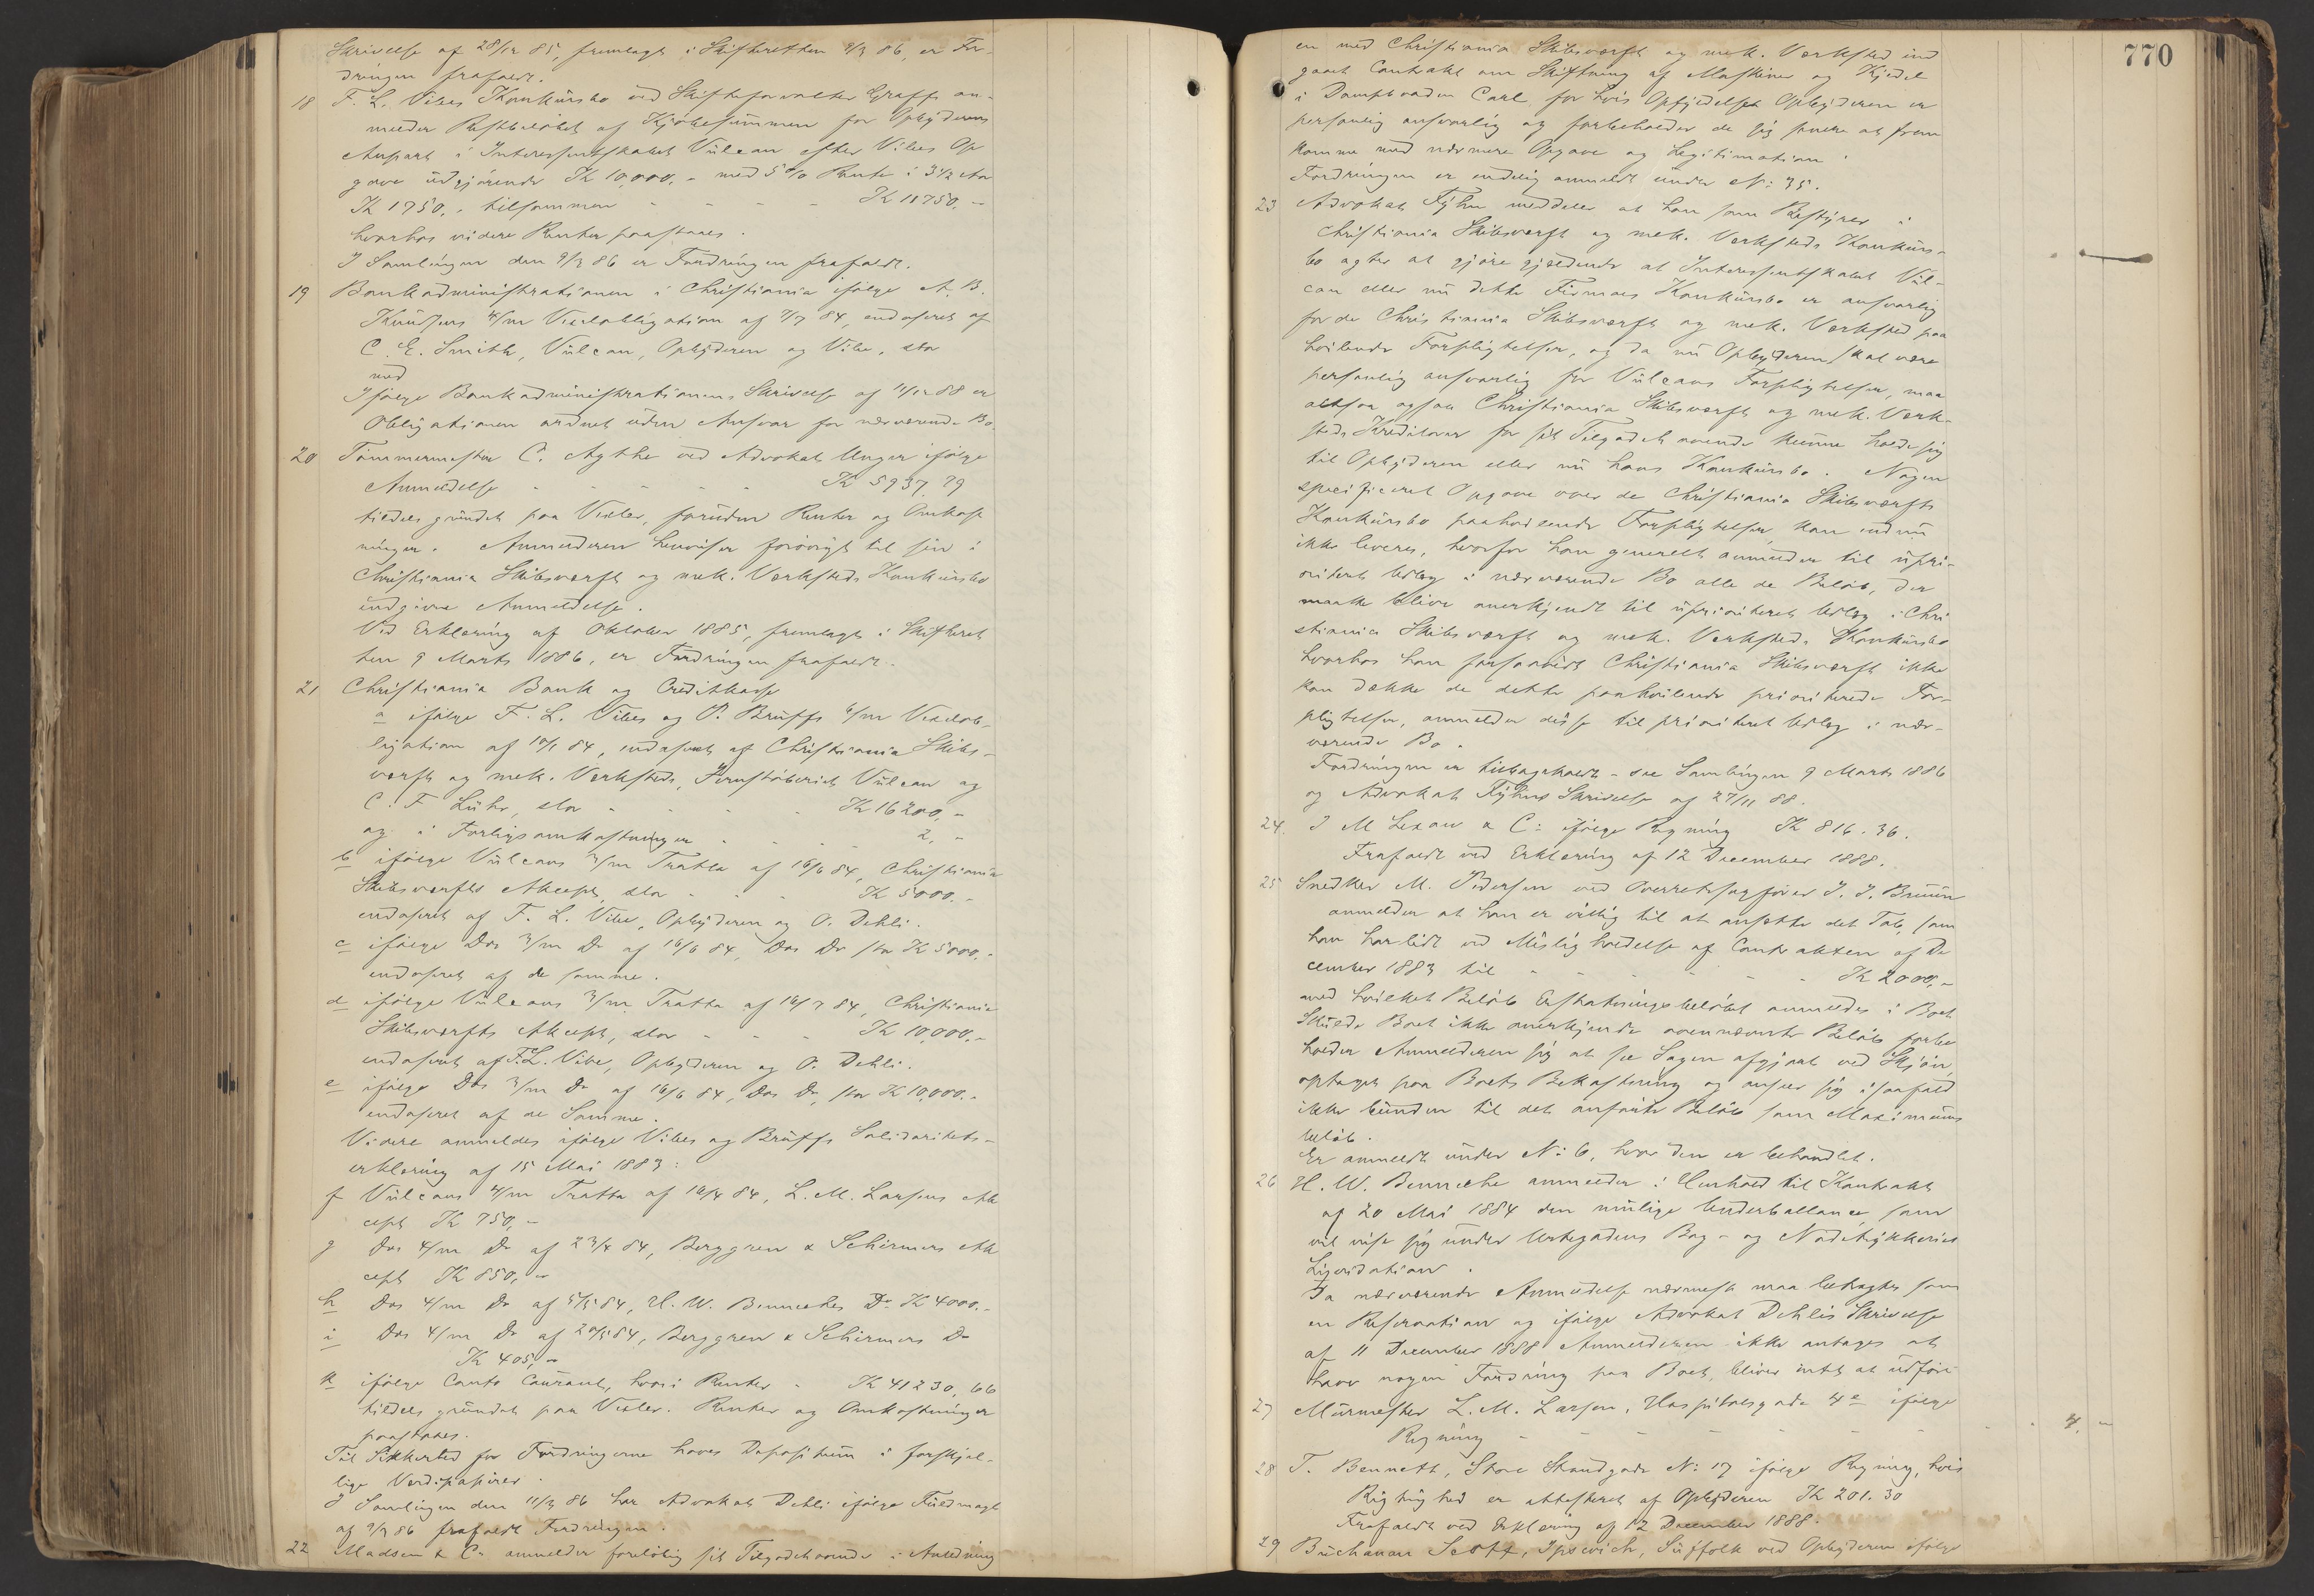 Skrivelse af 28/12 85, fremlagt i Skifteretten 9/3 86, er For-
dringen frafaldt.
18 F. L. Vibes Konkursbo ved Skifteforvalter Graff an-
melder Restbeløbet af Kjøbesummen for Opbyderens
Anpart i Interessentskabet Vulcan efter Vibes Op
gave udgjørende Kr 10,000,- med 5% Rente i 3½ Aar
Kr 1750,- tilsammen - - - - Kr 11750.-
hvorhos videre Renter paastaaes.
I Samlingen den 9/3 86 er Fordringen frafaldt.
19 Bankadministrationen i Christiania ifølge A. B.
Knudsens 4/m Vexelobligation af 7/7 84, endosseret af
C. E. Smith, Vulcan, Opbyderen og Vibe, stor
med
Ifølge Bankadministrationens Skrivelse af 11/12 88 er
Obligationen ordnet uden Ansvar for nærværende Bo.
20 Tømmermester C. Agthe ved Advokat Unger ifølge
Anmeldelse - - - - - Kr 5937. 29
tildels grundet paa Vexler, foruden Renter og Omkost
ninger. Anmelderen henviser forøvrigt til sin i
Christiania Skibsværft og mek. Værksteds Konkursbo
indgivne Anmeldelse.
Ved Erklæring af Oktober 1885, fremlagt i Skifteret
ten 9 Marts 1886, er Fordringen frafaldt.
21 Christiania Bank og Creditkasse
a ifølge F. L. Vibes og P. Bruffs 6/m Vexelob-
ligation af 10/1 84, endosseret af Christiania Skibs-
værft og mek. Værksted, Jernstøberiet Vulcan og
C. F. Lühr, stor - - - Kr 16200,-
og i Forligsomkostninger - - - 2,-
b ifølge Vulcans 3/m Tratta af 16/6 84, Christiania
Skibsværfts Akcept, stor - - - Kr 5000.-
endosseret af F. L. Vibe, Opbyderen og O. Dehli.
c ifølge Dos 3/m Do af 16/6 84, Dos Do stor Kr 5000.-
endosseret af de samme.
d ifølge Vulcans 3/m Tratta af 16/7 84, Christiania
Skibsværfts Akcept, stor - - - Kr 10,000.-
endosseret af F.L. Vibe, Opbyderen og O. Dehli.
e ifølge Dos 3/m Do af 16/6 84, Dos Do, stor Kr 10,000.-
endosseret af de Samme.
Videre anmeldes ifølge Vibes og Bruffs Solidaritets-
erklæring af 15 Mai 1883:
f Vulcans 4/m Tratta af 16/4 84, L. M. Larsens Ak
cept Kr 750,-
g Dos 4/m Do af 23/4 84, Berggren & Schirmers Ak
cept Kr 850,-
h Dos 4/m Do af 5/5 84, H. W. Benneches Do Kr 4000.-
i Dos 4/m Do af 20/5 84, Berggren & Schirmers Do
Kr 405,-
k ifølge Conto Courant, hvori Renter - Kr 41230, 66
tildels grundet paa Vexler. Renter og Omkostninger
paastaaes.
Til Sikkerhed for Fordringerne haves Depositum i forskjel-
lige Værdipapirer.
I Samlingen den 11/3 86 har Advokat Dehli ifølge Fuldmagt
af 9/3 86 frafaldt Fordringen.
22 Madsen & Co anmelder foreløbig sit Tilgodehavende i Anledning
770
en med Christiania Skibsværft og mek. Værksted ind
gaaet Contrakt om Skiftning af Maskiner og Kjedel
i Dampbaaden Carl, for hvis Opfyldelse Opbyderen er
personlig ansvarlig og forbeholder de sig senere at frem
komme med nærmere Opgave og Legitimation.
Fordringen er endelig anmeldt under No: 35.
23 Advokat Fÿhn meddeler at han som Bestyrer i
Christiania Skibsværft og mek. Værksteds Konkurs-
bo agter at gjøre gjældende at Interessentskabet Vul-
can eller nu dette Firmaes Konkursbo er ansvarlig
for de Christiania Skibsværft og mek. Værksted paa
hvilende Forpligtelser, og da nu Opbyderen skal være
personlig ansvarlig for Vulcans Forpligtelser, maa
altsaa ogsaa Christiania Skibsværft og mek. Værk-
steds Kreditorer for sit Tilgodehavende kunne holde sig
til Opbyderen eller nu hans Konkursbo. Nogen
specificeret Opgave over de Christiania Skibsværfts
Konkursbo paahvilende Forpligtelser kan endnu
ikke leveres, hvorfor han generelt anmelder til upri-
oriteret Udlæg i nærværende Bo alle de Beløb, der
maatte blive anerkjendt til uprioriteret Udlæg i Chri
stiania Skibsværft og mek. Værksteds Konkursbo
hvorhos han forsaavidt Christiania Skibsværft ikke
kan dække de dette paahvilende prioriterede For-
pligtelser, anmelder disse til prioriteret Udlæg i nær-
værende Bo.
Fordringen er tilbagekaldt - see Samlingen 9 Marts 1886
og Advokat Fÿhns Skrivelse af 27/11 88.
24. J M Lexau & Co: ifølge Regning Kr 816. 36.
Frafaldt ved Erklæring af 12 December 1888.
25 Snedker M. Pedersen ved Overretssagfører J. J. Bruun
anmelder at han er villig til at ansætte det Tab, som
han har lidt ved Misligholdelse af Contrakten af De
cember 1883 til - - - - - Kr 2000,-
med hvilket Beløb Erstatningsbeløbet anmeldes i Boet
Skulde Boet ikke anerkjende ovennævnte Beløb forbe
holder Anmelderen sig at see Sagen afgjort ved Skjøn,
optaget paa Boets Bekostning og anseer sig isaafald
ikke bunden til det anførte Beløb som Maximums
beløb.
Er anmeldt under No: 6, hvor den er behandlet.
26 H. W. Benneche anmelder i Henhold til Kontrakt
af 20 Mai 1884 den mulige Underballance, som
vil vise sig under Urtegadens Bog- og Nodetrykkeries
Liqvidation.
Da nærværende Anmeldelse nærmest maa betragtes som
en Reservation og ifølge Advokat Dehlis Skrivelse
af 11 December 1888 Anmelderen ikke antages at
have nogen Fordring paa Boet, bliver intet at udføre
27 Murmester L. M. Larsen, Hospitalsgade 4e ifølge
Regning - - - - - - - 4,-
28 T. Bennett, Store Strandgade No: 17 ifølge Regning, hvis
Rigtighed er attesteret af Opbyderen Kr 201. 30
Frafaldt ved Erklæring af 12 December 1888.
29 Buchanan Scott, Ipswich, Suffolk ved Opbyderen ifølge